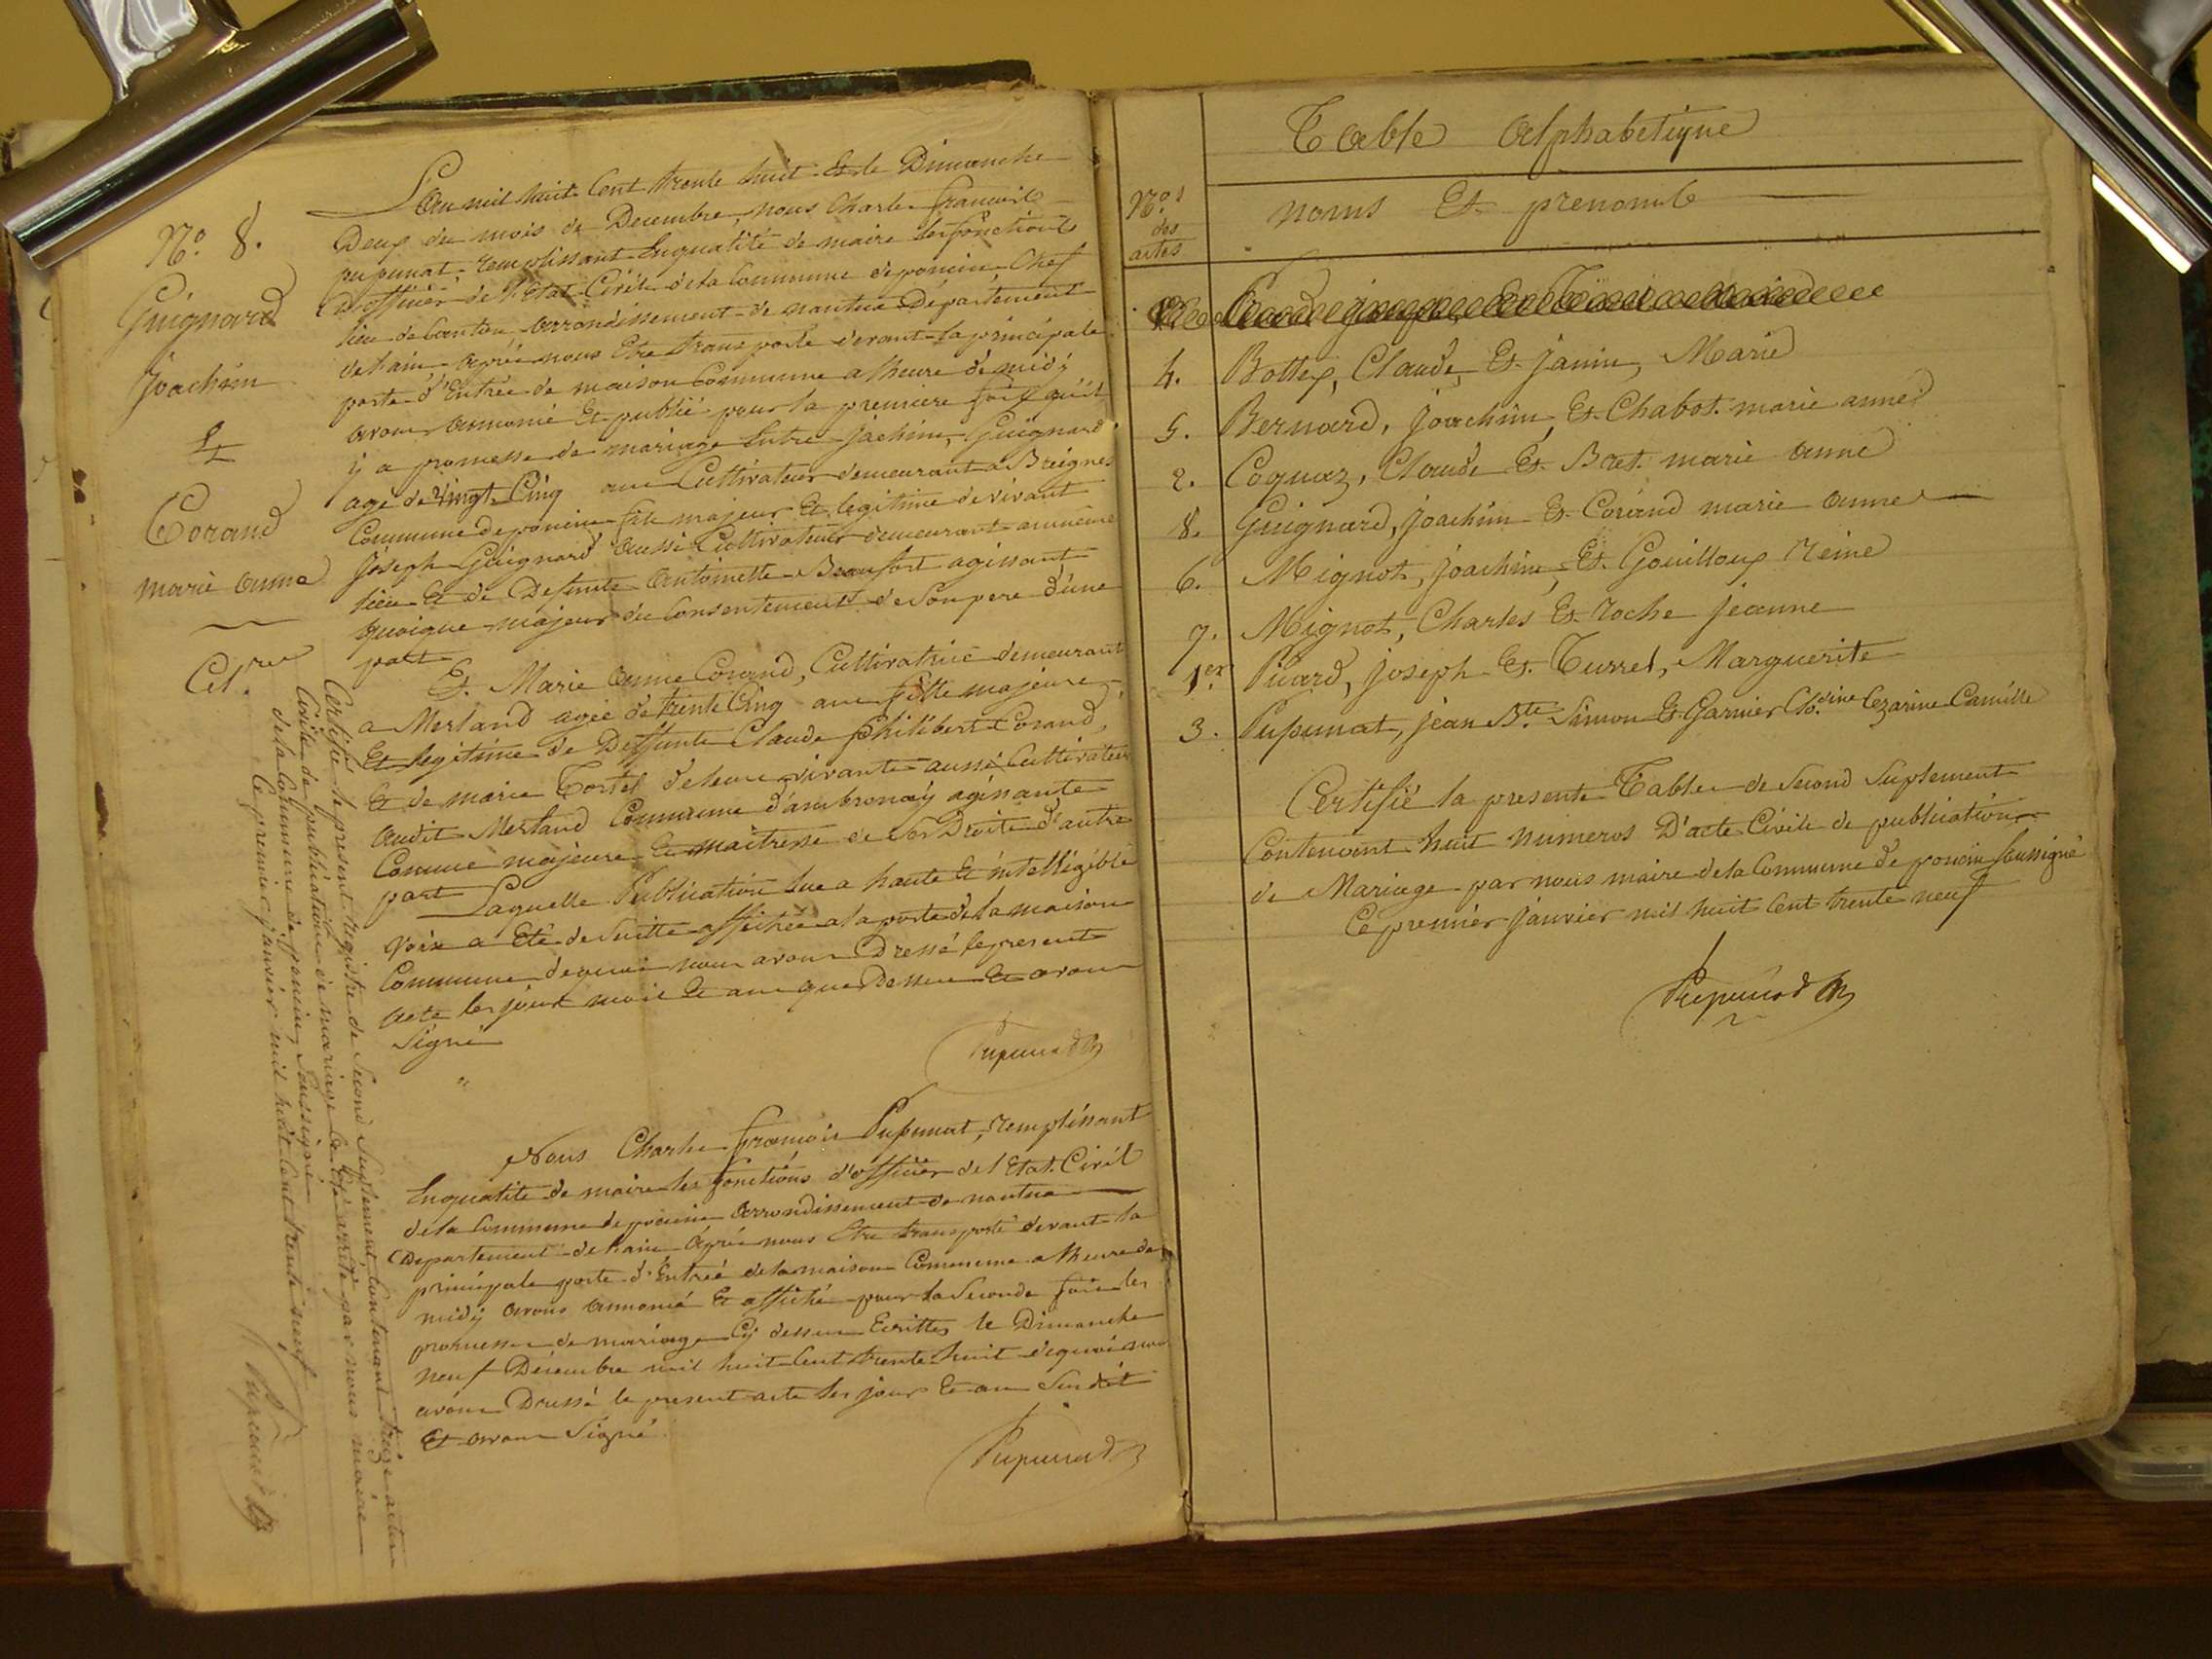 N.o 8.
Guignard
Joachim
Et
Corand
marie anne
L'an mil huit Cent trente huit Et le Dimanche
Deux du mois de Decembre, nous Charle francois
pupunat, remplissant Enqualité de maire les fonctions
D'officier de l'Etat Civil de la Commune de poncin Chef
lieu de Canton arrondissement de nantua Département
de hain aprés nous Etre transporté devant la principale
porte d'Entrée de maison Commune a lheure de midÿ
avons annoncé Et publié pour la premiere fois qu'il
ÿ a promesse de mariage Entre joachim, Guignard
agé de vingt Cinq ans Cultivateur demeurant a Breignes
Commune de poncin fils majeur Et legitime de vivant
Joseph Guignard aussi Cultivateur demeurant au même
lieu Et de Defunte Antoinette Beaufort agissant
quoique majeur du Consentement de Son pere d'une
part
Et Marie Anne Corand, Cultivatrice demeurant
a Merland agée de trente Cinq ans fille majeure
Et legitime de Deffunts Claude philibert Corand,
Et de marie Tortel de leur vivants aussi Cultivateurs
audit Merland Commune d'ambronaÿ agissante
Comme majeure Et maitresse de Ses Droits d'autre
part
Laquelle Publication lue a haute Et intelligible
voix a Eté de Suitte affichée a la porte de la maison
Commune dequoi nous avons Dressé le present
acte les jour mois Et an que Dessus Et avons
Signé
Pupunat
Nous Charle francois Pupunat, remplissant
Enqualité de maire les fonctions d'officier de l'Etat Civil
de la Commune de poncin arrondissement de nantua
Departement de hain aprés nous Etre transporté devant la
principale porte d'Entrée de la maison Commune a lheure de
midÿ avons annoncé Et affiché pour la Seconde fois les
promesses de mariage Cÿ dessus Ecrittes le Dimanche
neuf Décembre mil huit Cent trente huit dequoi nous
avons Dressé le present acte les jour Et an Susdit
Et avons Signé
Pupunat
Certifié le present registre de Second Suplement Contenant treize actes
Civils de publications de mariage Et arrété par nous maire
de la Commune de poncin, Soussigné
Ce premier janvier mil huit Cent trente neuf
Pupunat
Table Alphabetique
N.os des actes
noms Et prenoms
4. Bottex, Claude, Et Janin, Marie
5. Bernard, Joachim, Et Chabot marie anne
2. Coquaz, Claude Et Bret marie anne
8. Guignard, Joachim Et Corand marie anne
6. Mignot, Joachim, Et Gouilloux reine
7. Mignot, Charles Et roche jeanne
1er Picard, Joseph Et Turrel, Marguerite
3. Pupunat, jean Bte Simon Et Garnier Cldine Cezarine Camille
Certifié la presente Table de Second Suplement
Contenant huit numeros D'acte Civils de publication
de Mariage par nous maire de la Commune de poncin Soussigné
Ce premier janvier mil huit Cent trente neuf
Pupunat